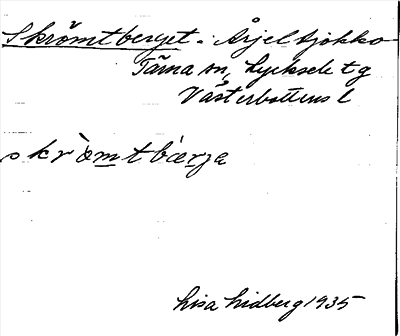 Skrömtberget. Årjel tjokko
Tärna sn, Lycksele tg
Västerbottens l
skròmtbárja
Lisa Lidberg 1935